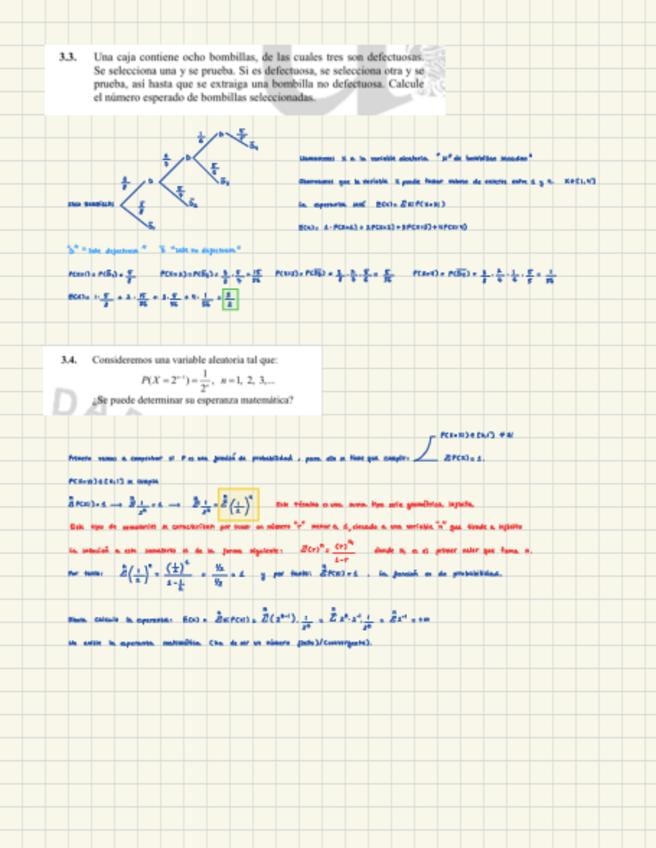 3.3. Una caja contiene ocho bombillas, de las cuales tres son defectuosas.
Se selecciona una y se prueba. Si es defectuosa, se selecciona otra y se
prueba, así hasta que se extraiga una bombilla no defectuosa. Calcule
el número esperado de bombillas seleccionadas.
Llamaremos X a la variable aleatoria "nº de bombillas sacadas"
Observamos que la variable X puede tomar valores de enteros entre 1 y 4. X∈[1,4]
La esperanza será E(X) = Σ x P(X=x)
E(X) = 1·P(X=1) + 2P(X=2) + 3P(X=3) + 4P(X=4)
D = "sale defectuosa" "sale no defectuosa"
P(X=1) = 5/8 P(X=2) = 3/8 · 5/7 = 15/56 P(X=3) = 3/8 · 2/7 · 5/6 = 5/56 P(X=4) = 3/8 · 2/7 · 1/6 · 5/5 = 1/56
E(X) = 1 · 5/8 + 2 · 15/56 + 3 · 5/56 + 4 · 1/56 = 3/2
3.4. Consideremos una variable aleatoria tal que:
P(X = 2ⁿ⁻¹) = 1/2ⁿ, n = 1, 2, 3,...
¿Se puede determinar su esperanza matemática?
Primero vamos a comprobar si P es una función de probabilidad, para ello se tiene que cumplir:
Σ P(X) = 1.
Σ P(X) = 1 → Σ 1/2ⁿ = 1 → Σ 1/2ⁿ = Σ (1/2)ⁿ Este término es una suma tipo serie geométrica infinita.
Este tipo de sumatorios se caracterizan por tener un número "r" menor a 1, elevado a una variable "n" que tiende a infinito
La solución a este sumatorio es de la forma siguiente: donde n₀ es el primer valor que toma n.
Por tanto: y por tanto: Σ P(X) = 1, la función es de probabilidad.
Ahora calculo la esperanza: E(X) = Σ x P(X) = Σ (2ⁿ⁻¹) · 1/2ⁿ = Σ 2ⁿ · 2⁻¹ · 1/2ⁿ = Σ 2⁻¹ = +∞
No existe la esperanza matemática (ha de ser un número finito)/(convergente).